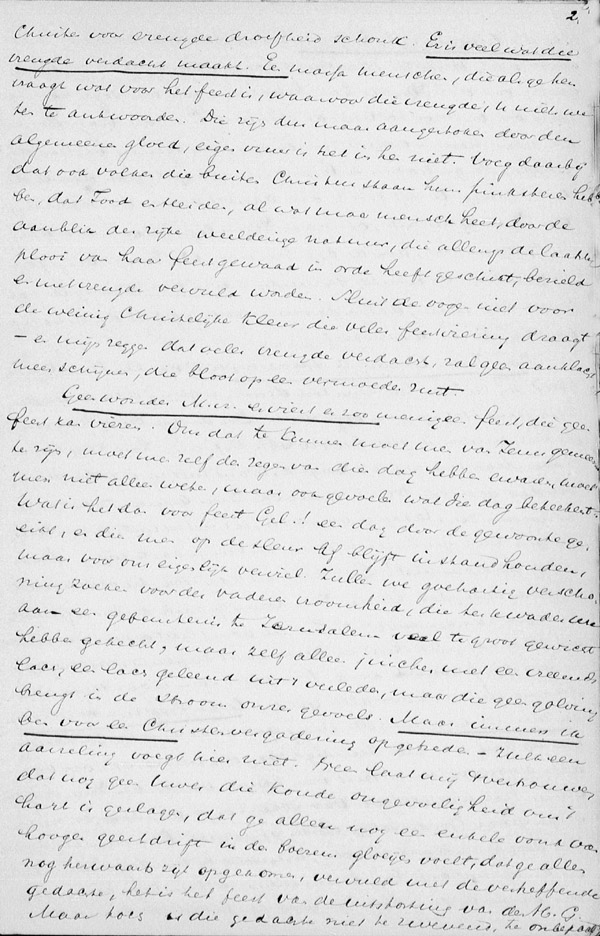 2.
Christen voor vreugde droefheid schonk. Er is veel wat die
vreugde verdacht maakt. Een massa menschen, die als ge hen
vraagt wat voor het feest is, waarvoor die vreugde, u niets we
ten te antwoorden. Die zijn dus maar aangestoken door den
algemeenen gloed, eigen vuur is het in hen niet. Voeg daarbij
dat ook volken die buiten Christus staan hun pinksteren heb
ben, dat Jood en Heiden, al wat maar mensch heet, door den
aanblik der rijke weelderige natuur, die allengs de laatste
plooi van haar feestgewaad in orde heeft geschikt, bezield
en met vreugde vervuld worden. Sluit de oogen niet voor
de weinig Christelijke kleur die veler feestviering draagt
– en mijn zeggen dat veler vreugde verdacht, zal geen aanklacht
meer schijnen, die bloot op een vermoeden rust.
Geen wonder M. er viert er zoo menigeen feest, die geen
feest kan vieren. Om dat te kunnen moet men van Jezus gemeente
te zijn, moet men zelf den zegen van dien dag hebben ervaren, moet
men niet alleen weten, maar ook gevoelen wat die dag beteekent.
Wat is het dan voor feest Gel.! een dag door de gewoonte ge
eikt, en dien men op den sleur af blijft in stand houden,
maar voor ons eigenlijk verviel. Zullen we goedhartig verschoo
ning zoeken voor der vaderen vroomheid, die
aan een gebeurtenis te Jeruzalem veel te groot gewicht
hebben gehecht, maar zelf alleen juichen met een vreemden
lach, een lach geleend uit 't verleden, maar die geen golving
brengt in de stroom onzer gevoels. Maar immers ik
ben voor een Christenvergadering opgetreden – Zulk een
aarzeling voegt hier niet. Neen laat mij vertrouwen
dat nog geen uwer die koude ongevoeligheid om 't
hart is geslagen, dat ge allen nog een enkele vonk van
hooger geestdrift in den boezem gloeijen voelt, dat ge allen
nog herwaarts zijt opgekomen, vervuld met de verheffende
gedachte, het is het feest van de uitstorting van den H. G.
Maar toch is die gedachte niet te zwevend, te onbepaald